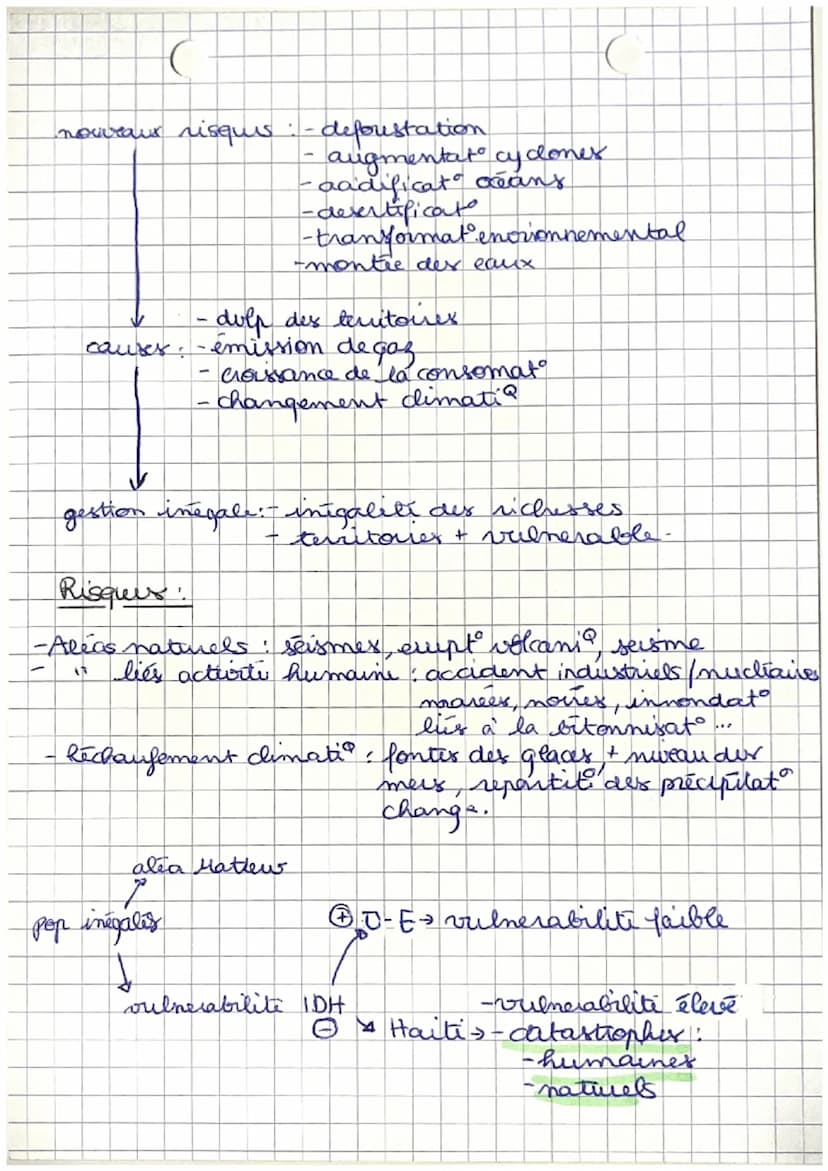 nouveaux risques : - deforestation
- augmentat° cyclones
- acidificat° océans
- desertificat°
- transformat° environnemental
- montée des eaux
- dvlp des territoires
causes : - émission de gaz
- croissance de la consomat°
- changement climatiQ
gestion inégale : - inégalité des richesses
- territoires + vulnerable.
Risques :
- Aléas naturels : séismes, erupt° volcaniQ, seisme
- " liés activité humaine : accident industriels/nucléaires
marées, noires, innondat°
liés à la bétonnisat° ...
- Réchaufement climatiQ : fontes des glaces, + niveau des
mers, repartit° des précipitat°
change.
aléa
pop inégales
⊕ U-E → vulnerabilité faible
vulnerabilité IDH
- vulnerabilité élevé
⊖ ↘ Haïti → - catastrophes :
- humaines
- naturels